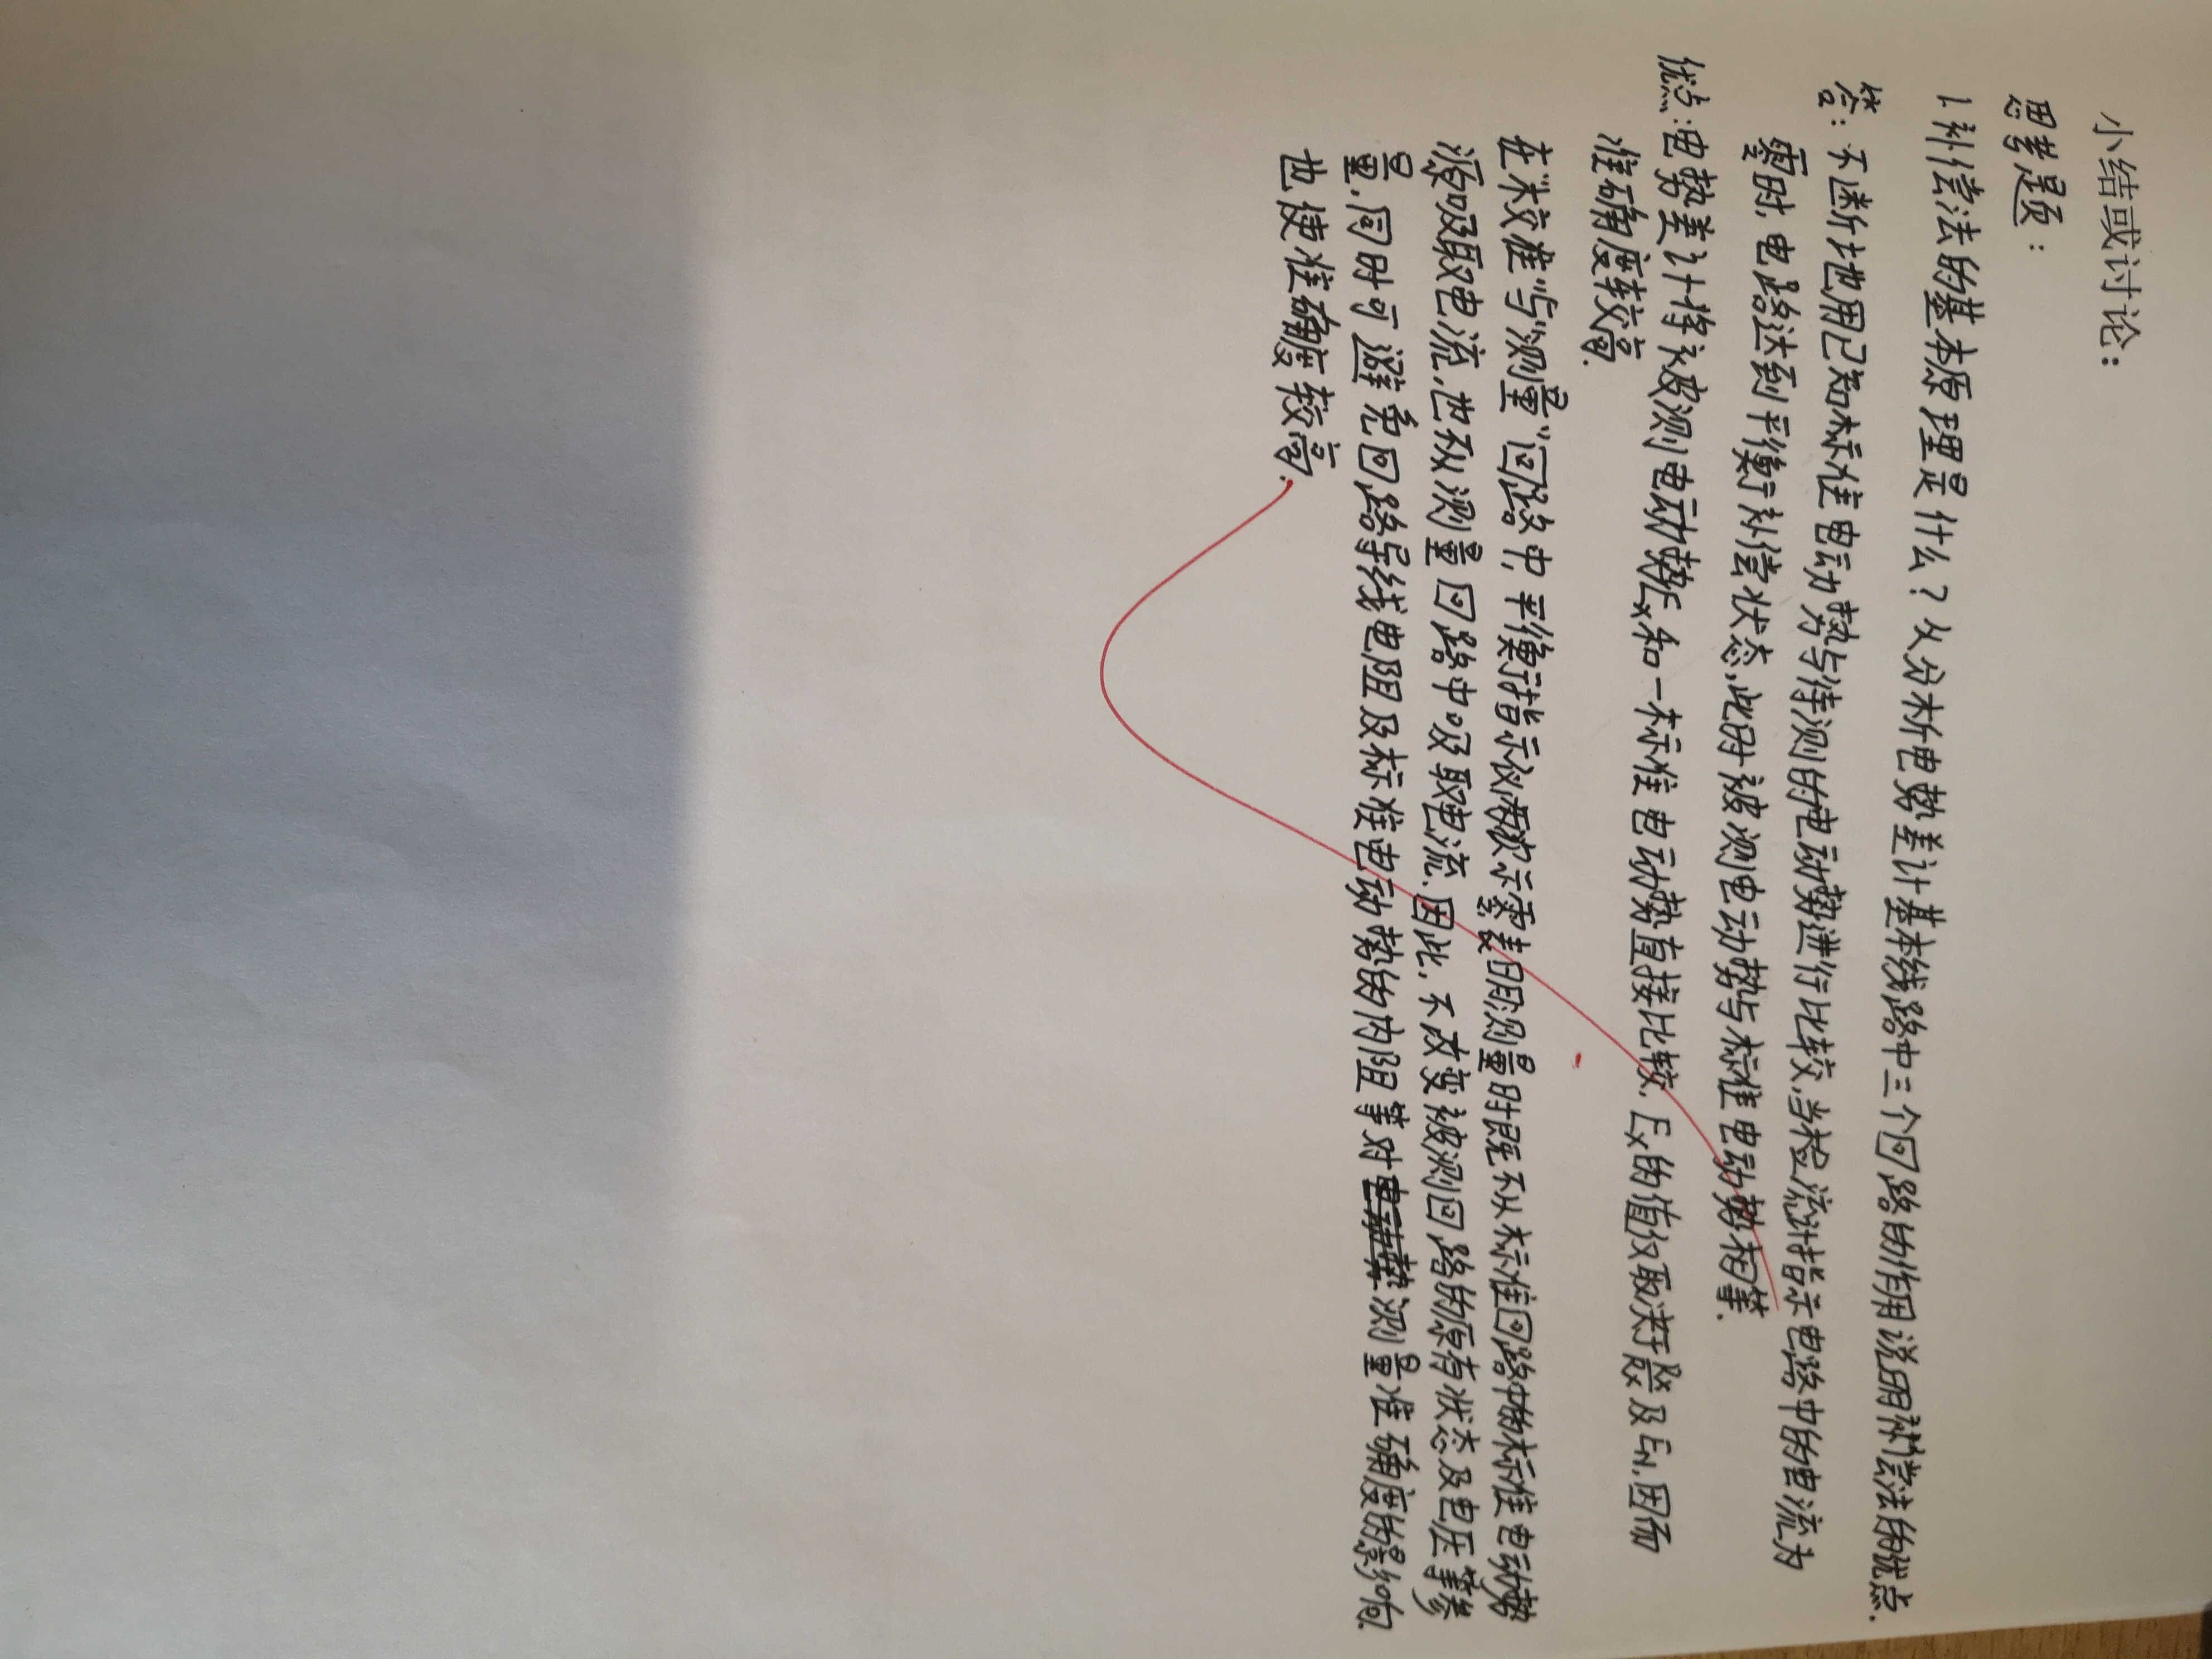 小结或讨论：
思考题：
1.补偿法的基本原理是什么？从分析电势差计基本线路中三个回路的作用说明补偿法的优点.
答：不断地用已知标准电动势与待测的电动势进行比较,当检流计指示电路中的电流为
零时,电路达到平衡补偿状态,此时被测电动势与标准电动势相等.
优点：电势差计将被测电动势Ex和一标准电动势直接比较.Ex的值仅取决于及EN,因而
准确度较高.
在"校准"与"测量"回路中,平衡指示仪两次示零表明测量时既不从标准回路中的标准电动势
源吸取电流,也不从测量回路中吸取电流.因此,不改变被测回路的原有状态及电压等参
量,同时可避免回路导线电阻及标准电动势的内阻等对测量准确度的影响.
也使准确度较高.